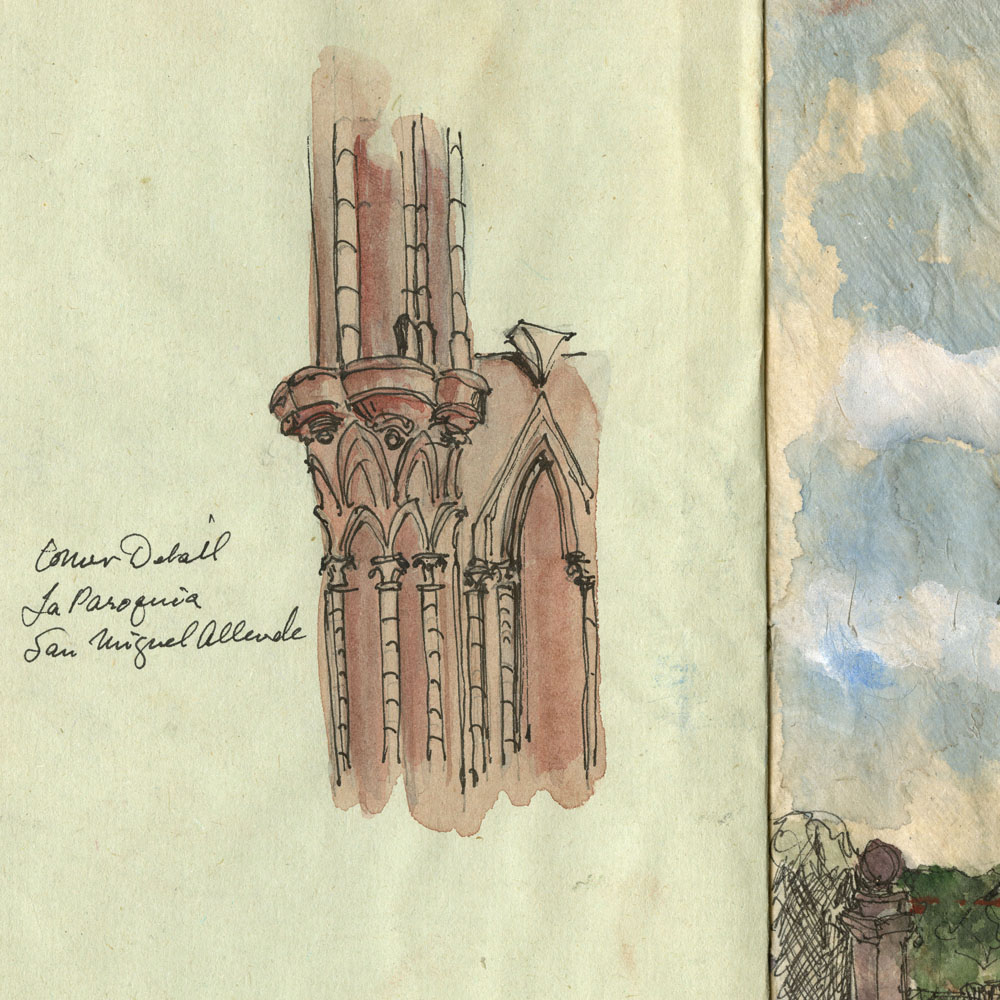 Corner Detail
La Paroquia
San Miguel Allende